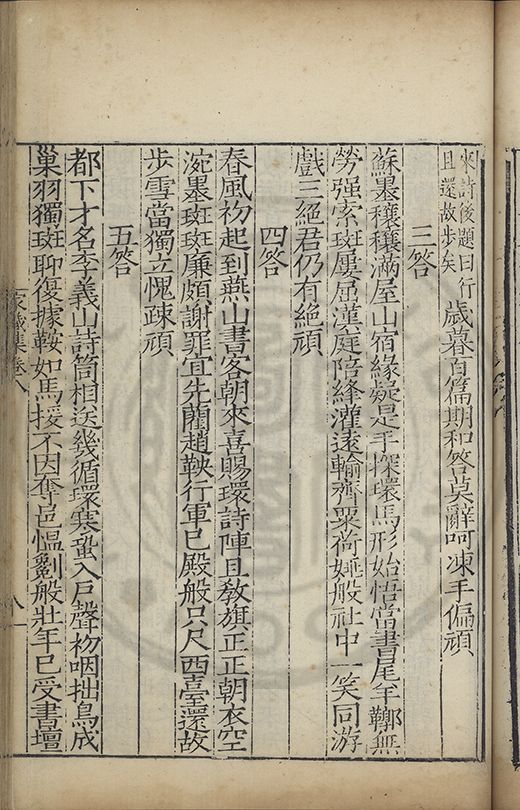 來詩後題曰行且還故步矣歲暮百篇期和答莫辭呵凍手偏頑
三答
蘇墨穰穰滿屋山宿緣疑是手探環馬形始悟當書尾羊鞹無
勞强索斑屢屈漢庭陪絳灌遠輸齊衆荷般社中一笑同游
戲三絕君仍有絕頑
四答
春風初起到燕山書客朝來喜賜環詩陣且教旗正正朝衣空
涴墨斑斑廉頗謝罪宜先藺趙鞅行軍已殿般只尺西臺還故
步雪當獨立愧疎頑
五答
都下才名李義山詩筒相送幾循環寒蛩入戶聲初咽拙鳥成
巢羽獨斑聊復據鞍如馬援不因奪邑慍劉般壯年已受書壇
家藏集卷八